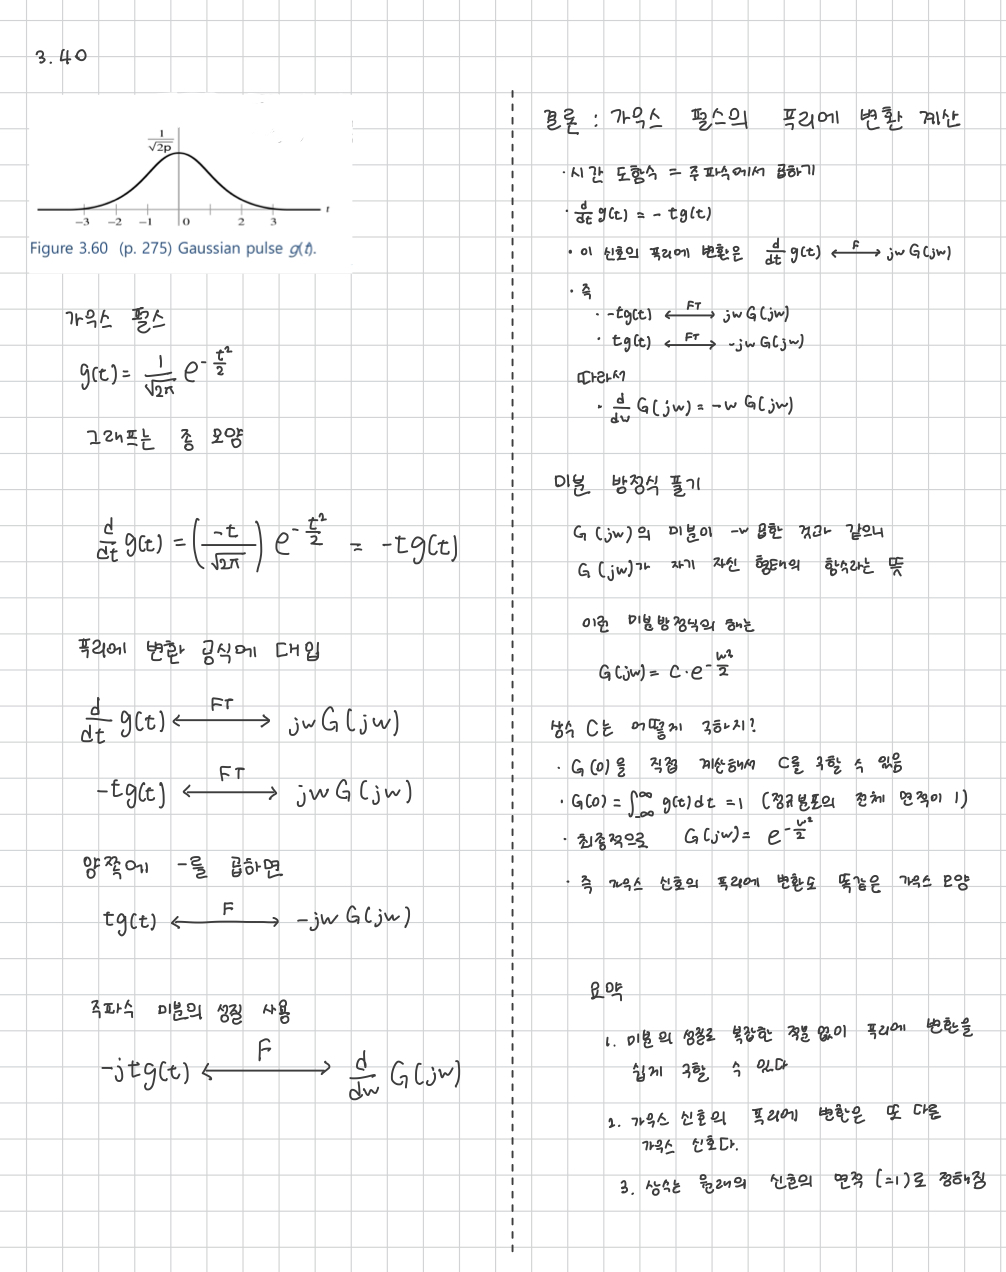 3.40
1/√2p
-3 -2 -1 0 2 3 t
Figure 3.60 (p. 275) Gaussian pulse g(t).
가우스 펄스
g(t) = 1/√2π e^(-t²/2)
그래프는 종 모양
d/dt g(t) = (-t/√2π) e^(-t²/2) = -tg(t)
푸리에 변환 공식에 대입
d/dt g(t) ←FT→ jw G(jw)
-tg(t) ←FT→ jw G(jw)
양쪽에 -를 곱하면
tg(t) ←F→ -jw G(jw)
주파수 미분의 성질 사용
-jtg(t) ←F→ d/dw G(jw)
결론 : 가우스 펄스의 푸리에 변환 계산
· 시간 도함수 = 주파수에서 곱하기
· d/dt g(t) = - tg(t)
· 이 신호의 푸리에 변환은 d/dt g(t) ←F→ jw G(jw)
· 즉
· -tg(t) ←FT→ jw G(jw)
· tg(t) ←FT→ -jw G(jw)
따라서
· d/dw G(jw) = -w G(jw)
미분 방정식 풀기
G(jw)의 미분이 -w 곱한 것과 같으니
G(jw)가 자기 자신 형태의 함수라는 뜻
이런 미분방정식의 해는
G(jw) = C·e^(-w²/2)
상수 C는 어떻게 구하지?
· G(0)을 직접 계산해서 C를 구할 수 있음
· G(0) = ∫_-∞^∞ g(t)dt = 1 (정규분포의 전체 면적이 1)
· 최종적으로 G(jw) = e^(-w²/2)
· 즉 가우스 신호의 푸리에 변환도 똑같은 가우스 모양
요약
1. 미분의 성질로 복잡한 적분 없이 푸리에 변환을
쉽게 구할 수 있다
2. 가우스 신호의 푸리에 변환은 또 다른
가우스 신호다.
3. 상수는 원래의 신호의 면적 (=1)로 정해짐